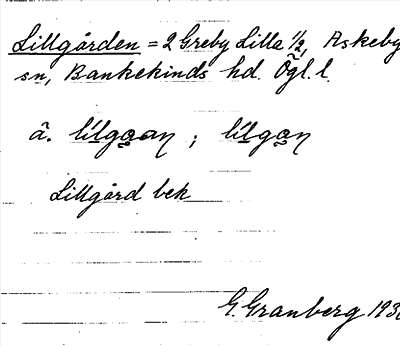 Lillgården = 2 Greby Lilla 1/2, Askeby
sn, Bankekinds hd. Ögl. l.
â. lílgǫan ; lílgǫn
Lillgård bek
G. Granberg 193